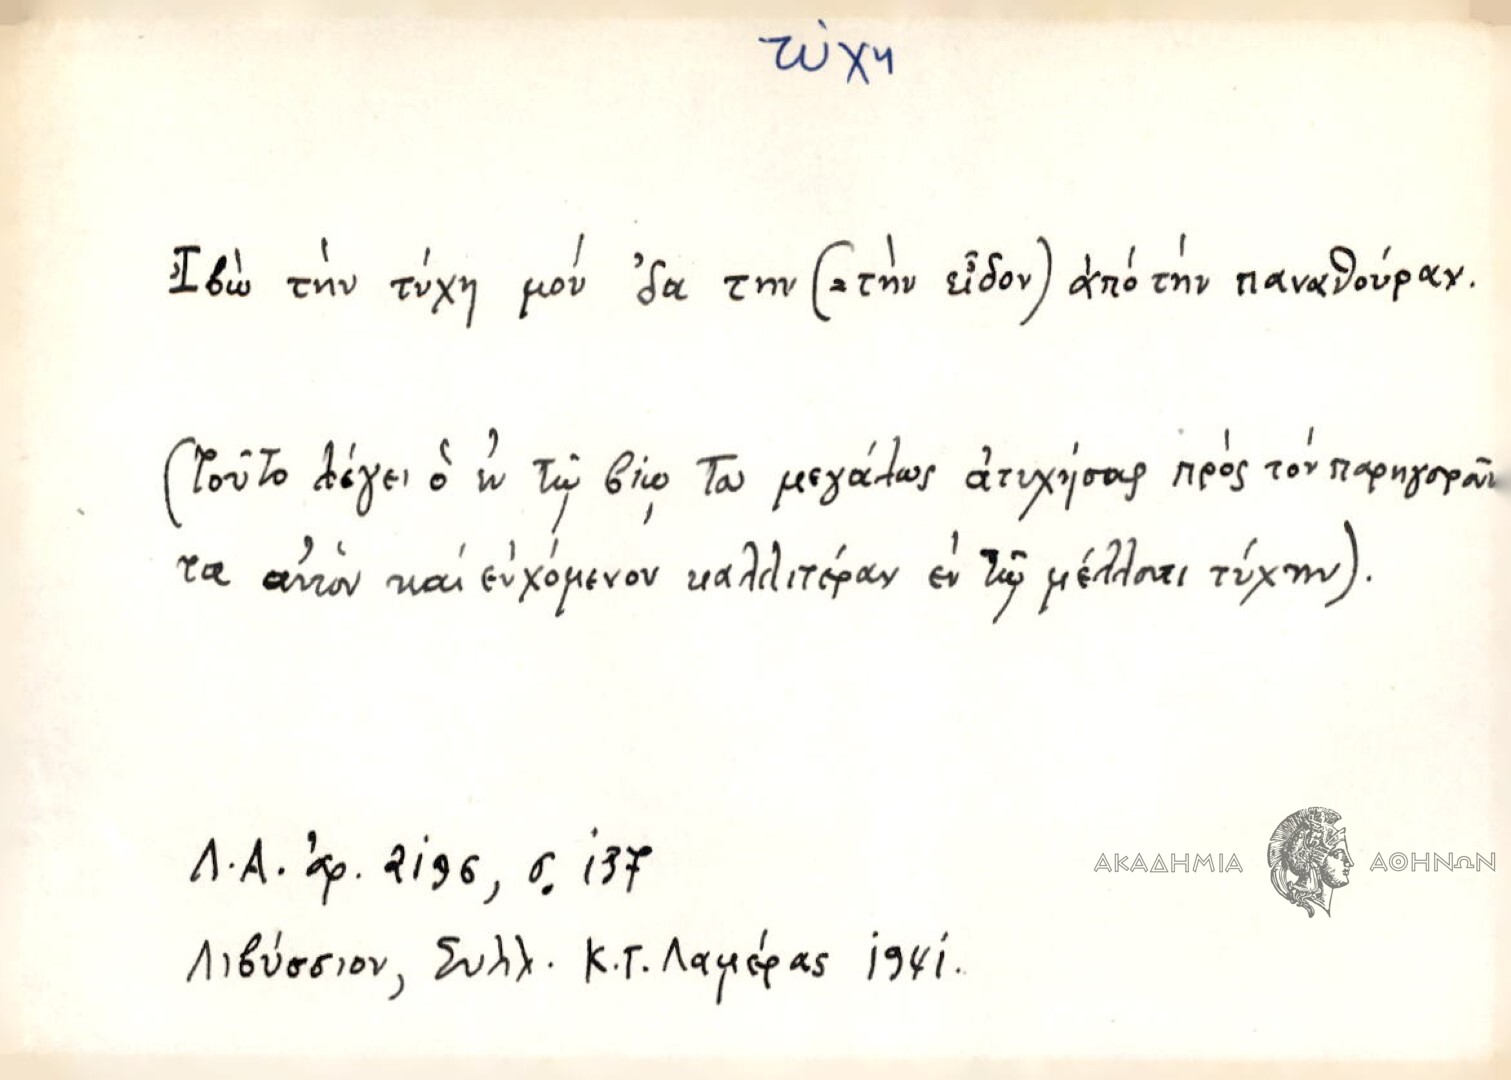 τύχη
Ἰβὼ τὴν τύχη μού 'δα την (= τὴν εἶδον) ἀπό τὴν παναθούραν.
(Τοῦτο λέγει ὁ ἐν τῷ βίῳ του μεγάλως ἀτυχήσας πρὸς τόν παρηγοροῦν
τα αὐτὸν καί εὐχόμενον καλλιτέραν ἐν τῷ μέλλοντι τύχην).
Λ.Α. ἀρ. 2196, σ. 137
ΑΚΑΔΗΜΙΑ ΑΘΗΝΩΝ
Λιβύσσιον, Συλλ. Κ.Τ. Λαμέρας 1941.